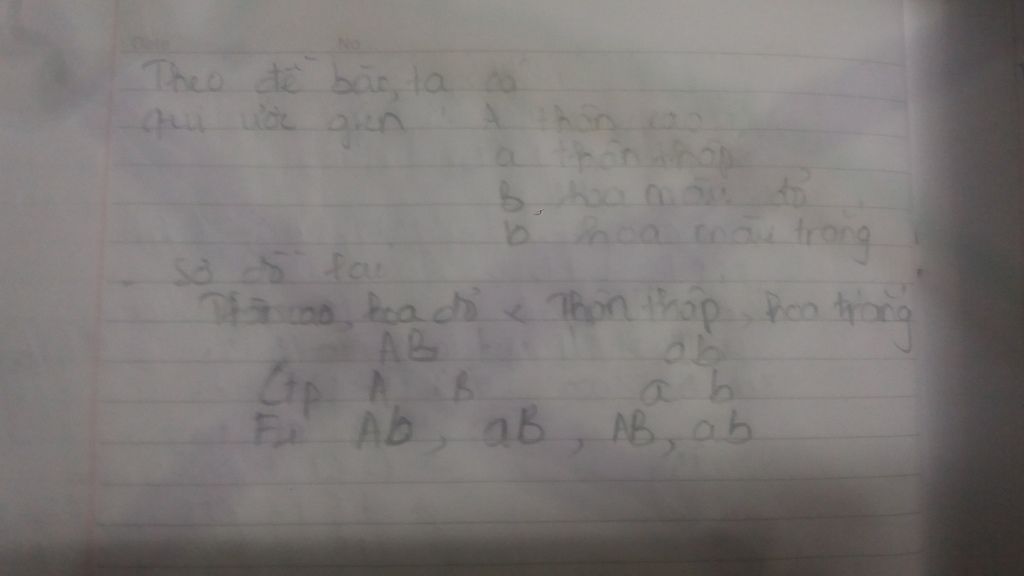 Date No
Theo đề bài, ta có
qui ước gien A thân cao
a thân thấp
B hoa màu đỏ
b hoa màu trắng
Sơ đồ lai
Thân cao, hoa đỏ x Thân thấp, hoa trắng
AB ab
Gp A B a b
F1 Ab, aB, AB, ab